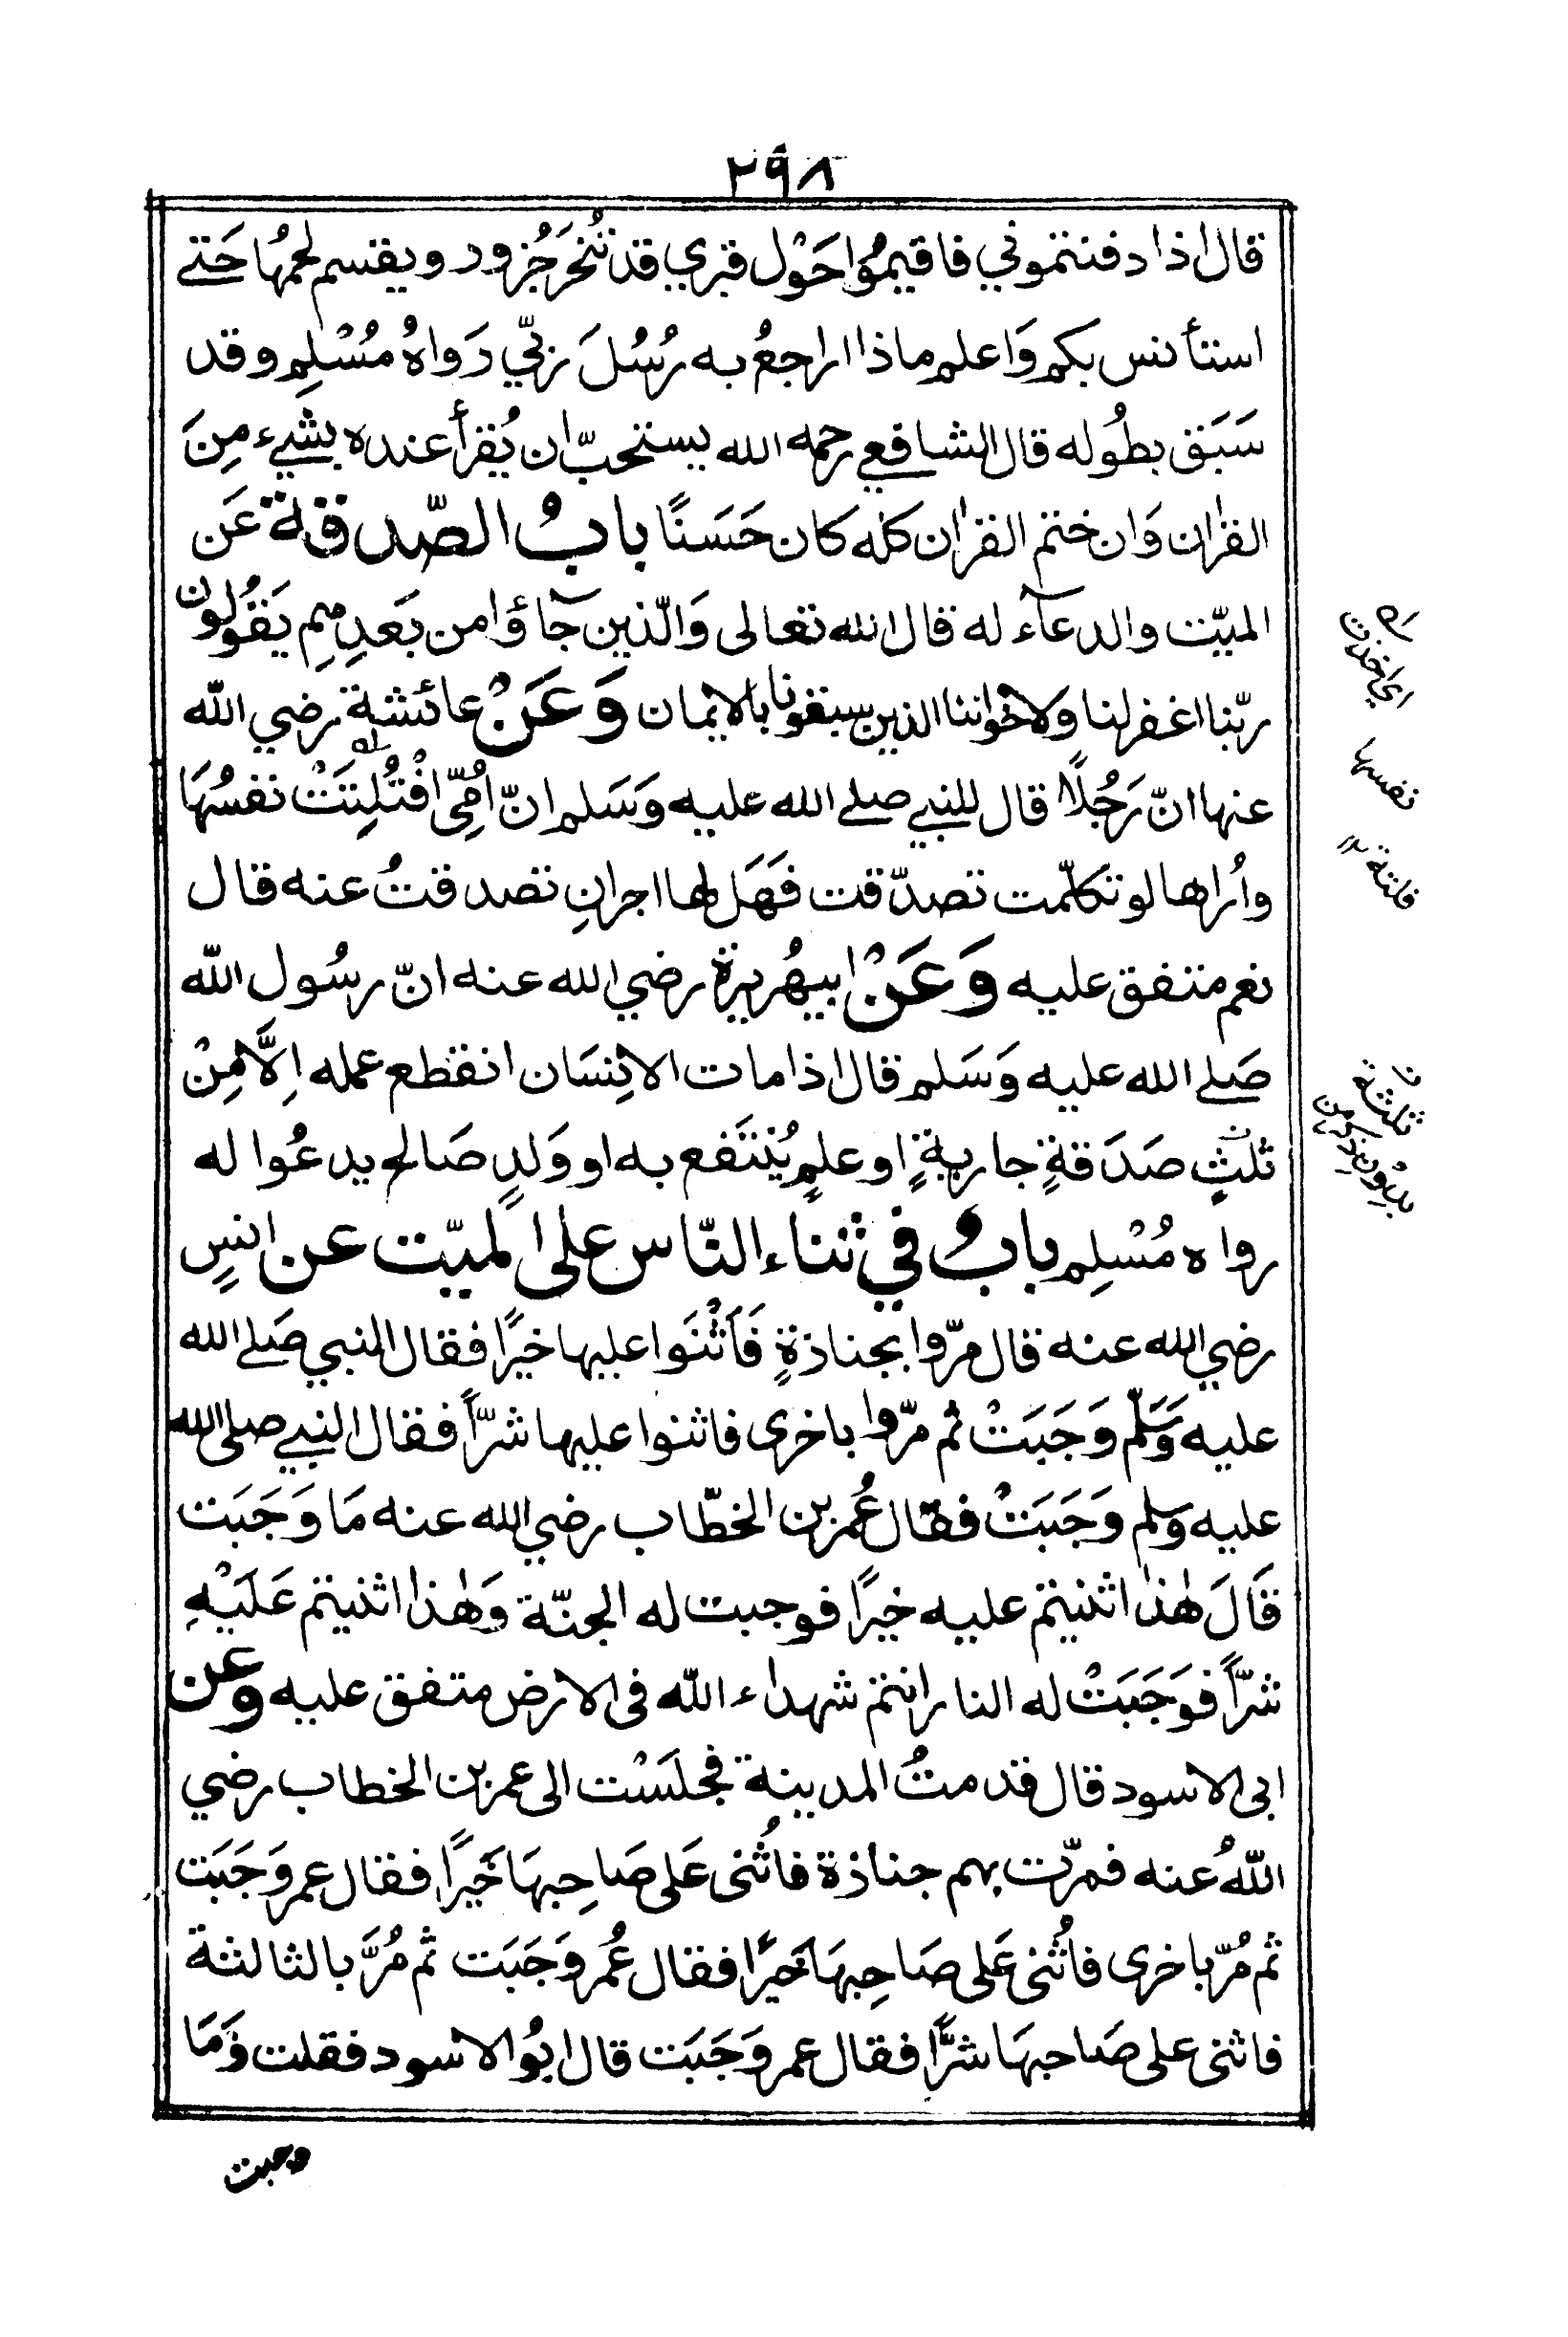 ٢٩٨
قال اذا دفنتموني فاقيمُوا حَوْل قبري قد تُنحَر جُزور ويقسم لحمهُا حَتے
استأنس بكم وَاعلم ماذا اراجعُ به رُسُلَ ربّي رَواهُ مُسْلِم وقد
سَبَق بطُوله قال الشافعي رحمه الله يستحبّ ان يُقرأ عنده بشيء مِنَ
القران وَان ختم القران كله كان حَسَنًا بابُ الصّدقة عَن
الميّت والدعآء له قال الله تعالى وَالّذين جآؤا من بَعدِهِم يَقُولُون
ربّنا اغفر لنا ولاخواننا الذين سبقونا بالايمان وَعَنْ عائشة رضي الله
عنها انّ رَجُلًا قال للنبي صلے الله عليه وَسَلم انّ اُمِّيْ افْتُلِتَتْ نفسُهَا
واُراها لو تكلّمت تصدّقت فَهَل لها اجر انِ تصدقتُ عنه قال
نعم متفق عليه وَعَنْ ابيهُريرة رضي الله عنه انّ رسُول الله
صَلے الله عليه وَسَلم قال اذا مات الانِسَان انقطع عمله اِلاَّ مِنْ
ثلثٍ صَدَقةٍ جاريةٍ او علمٍ يُنْتَفع به او وَلدٍ صَالح يدعُوا له
رواه مُسْلِم بابُ في ثناء النّاس على الميّت عن انسٍ
رضي الله عنه قال مرّوا بجنازةٍ فَاَثْنَوا عليها خيرًا فقال النبي صَلے الله
عليه وَسَلّم وَجَبَتْ ثم مرّوا باخرى فاثنوا عليها شرّاً فقال النبي صلى الله
عليه وَسلم وَجَبَتْ فقال عُمر بن الخطّاب رضي الله عنه مَا وَجَبَت
قَالَ هٰذا اثنيتم عليه خيرًا فوجبت له الجنّة وَهٰذا اثنيتم عَلَيْهِ
شرّاً فوَجَبَتْ له النار انتم شهداء الله فى الارض متفق عليه وعن
ابى الاسود قال قدمتُ المدينة فجلَسْت الى عمر بن الخطاب رضي
اللهُ عنه فمرّت بهم جنازة فاُثنى عَلى صَاحِبهَا خَيرًا فقال عمر وَجَبَت
ثم مُرّ باخرى فاُثنى عَلى صَاحِبهَا خَيرًا فقال عُمر وَجَبَت ثم مُرَّ بالثالثة
فاثنى على صَاحبهَا شرًّا فقال عمر وَجَبَت قال ابُو الاسود فقلت وَمَا
وجبت
اي اخذت
نفسها
فلتة
نا
ثلثة
بدون ذكر من